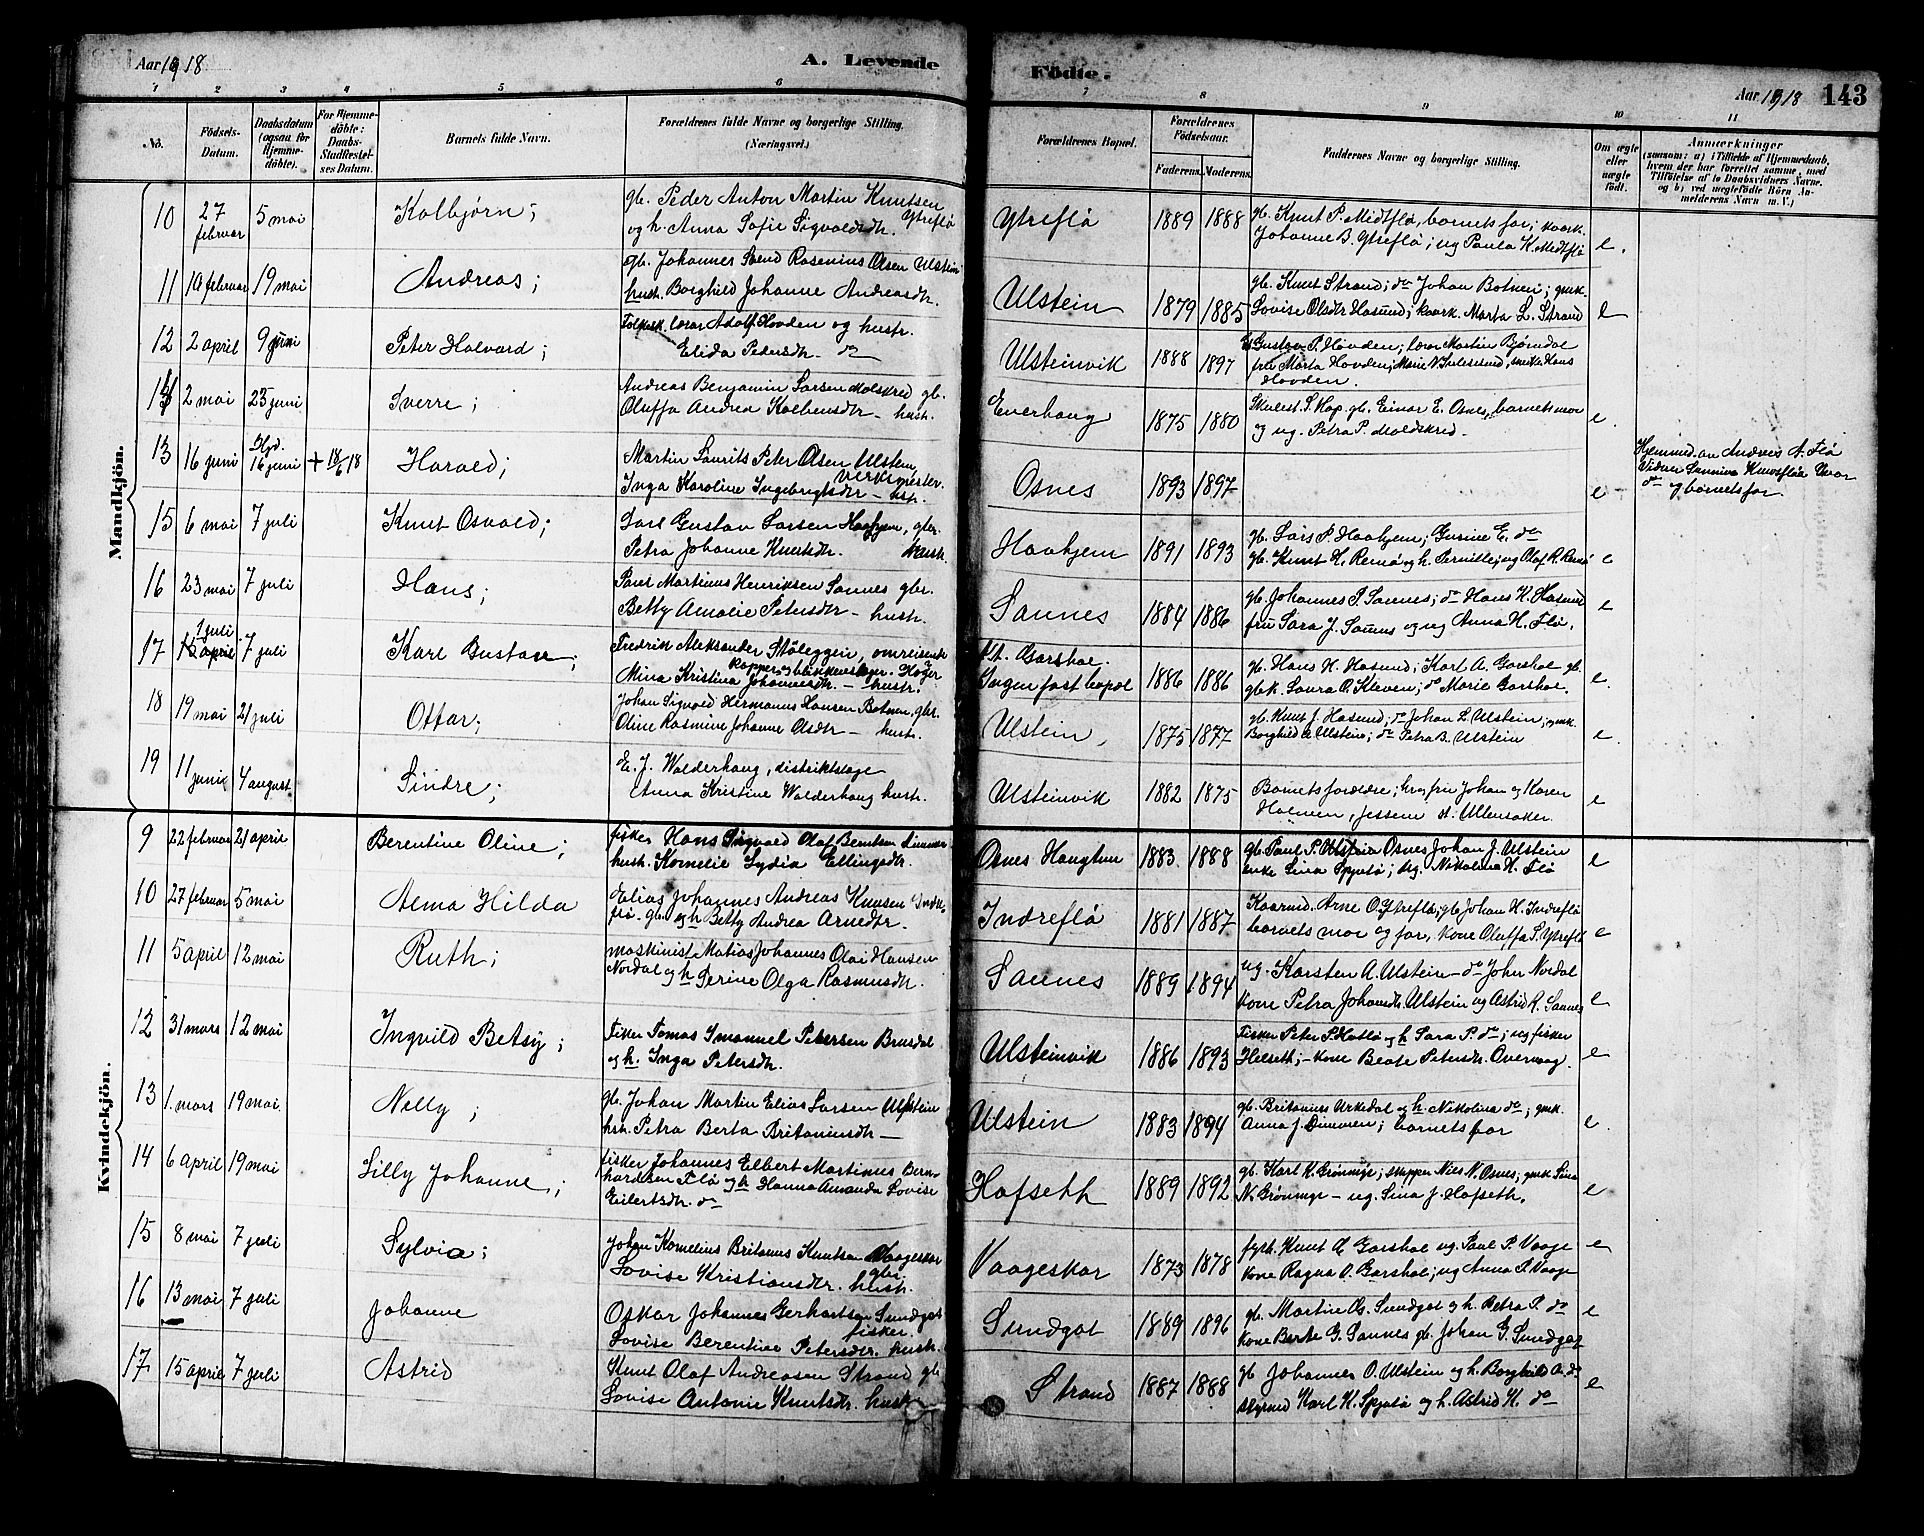 Aar 1918
A. Levende
Födte.
Aar 1918
143
1 2 3 4 5 6 7 8 9 10 11
No.
Födsels-Datum.
Daabsdatum (ogsaa for Hjemme-döbte).
For Hjemme-döbte: Daabs-Stadfæstel-ses Datum.
Barnets fulde Navn.
Forældrenes fulde Navne og borgerlige Stilling. (Næringsvei.)
Forældrenes Bopæl.
Forældrenes Födselsaar.
Faderens. Moderens.
Faddernes Navne og borgerlige Stilling.
Om ægte eller uægte född.
Anmærkninger
(saasom: a) i Tilfælde af Hjemmedaab,
hvem der har forrettet samme, med
Tilföielse af to Daabsvidners Navne.
og b) ved uægtefödte Börn An-
melderens Navn m. V.)
Mandkjön.
10 27 februar 5 mai Kolbjørn;
gb. Peder Anton Martin Knutsen Ytreflö
og h. Anna Sofie Sigvaldsdtr.
Ytreflö 1889 1888
gb. Knut P. Midtflö, barnets far; kaark.
Johanne B. Ytreflö; ug Paula K. Midtflö e.
11 19 februar 19 mai Andreas;
gb. Johannes Svend Rasenius Olsen Ulstein
hust. Borghild Johanne Andreasdtr.
Ulstein 1879 1885
gb. Knut Strand; do Johan Botnen; gmk.
Lovise Olsdtr Hasund; kaark. Marta L. Strand e
12 2 april 9 juni Peter Halvard;
Folkesk. lærer Adolf Hovden og hustr.
Elida Pedersdtr. do
Ulsteinvik 1888 1897
Gustav P. Hovden; lærer Martin Bjørndal
fru Marta Hovden; Marie N. hans
Hovden.
14 2 mai 23 juni Sverre;
Andreas Benjamin Larsen Molskred gb.
Oluffa Andrea Kolbensdtr – hustr.
Everhaug 1875 1880
Skulest. S. Hap. gb. Einar E. Osnes, barnets mor
og ug. Petra P. Moldskred. e.
13 16 juni Hjd. 16 juni + 18/6 18 Harald;
Martin Laurits Peter Olsen Ulstein, verksmester.
Inga Karoline Ingebrigtsdtr – hstr.
Osnes 1893 1897 e
Hjemmed. av Andreas A. Flö
Vidner Sunniva Knutsflöa
do og barnets far
15 6 mai 7 juli Knut Osvald;
Carl Gustav Larsen Haahjem, gbr.
Petra Johanne Knutsdtr. hustr.
Haahjem 1891 1893
gb. Lars P. Haahjem; Gurine E. do
gb. Knut H. Remø og h. Pernille; ug Olaf R. Remø e
16 23 mai 7 juli Hans;
Paul Martinus Henriksen Saunes gbr.
Betty Amalie Petersdtr – hustr.
Saunes 1884 1886
gb. Johannes P. Saunes; do Hans K. Hasund
fru Sara J. Saunes og ug Anna H. Flö. e
17 1 juli 7 juli Karl Gustav;
Fredrik Aleksander Stöleggen, omreisende
Kopper og blikkenslager.
Mina Kristina Johannesdtr – hustr.
pt. Garshol.
Ingen fast bopæl 1886 1886
gb. Hans H. Hasund; Karl A. Garshol gb.
gbk. Laura O. Kleven; do Marie Garshol. e.
18 19 mai 21 juli Ottar;
Johan Sigvald Hermanus Hansen Botnen, gbr.
Oline Rasmine Johanne Olsdtr – hustr.
Ulstein, 1875 1877
gb. Knut J. Hasund; do Johan L. Ulstein; gmk.
Borghild A. Ulstein; do Petra B. Ulstein e.
19 11 juni 4 august Sindre;
E. J. Walderhaug, distriktslæge
Anna Kristine Walderhaug hustr.
Ulsteinvik 1882 1875
Barnets forældre; hr og fru Johan og Karen
Holmen, A. Ullensaker. e
Kvindekjön.
9 22 februar 21 april Berentine Oline;
fisker Hans Sigvald Olaf Berntsen Dimmen
hust. Kornelie Lydia Ellingsdtr.
Osnes Haugtun 1883 1888
gb. Paul P. Osnes Johan J. Ulstein
enke Lina Spjutö; ug. Nikolina H. Flö e
10 27 februar 5 mai Alma Hilda
Elias Johannes Andreas Knutsen Indre-
flö. gb. og h Betty Andrea Arnedtr.
Indreflö 1881 1887
Kaarmd. Arne O. Ytreflö; gb Johan H. Indreflö
barnets mor og far, kone Oluffa P. Ytreflö e
11 5 april 12 mai Ruth;
maskinist Matias Johannes Olai Hansen
Nordal og h Serine Olga Rasmusdtr.
Saunes 1889 1894
ug. Karsten A. Ulstein – do John Nordal
kone Petra Johansdtr Ulstein ug Astrid R. Saunes e
12 31 mars 12 mai Ingvild Betsy;
Fisker Tomas Imanuel Petersen Brusdal
og h. Inga Petersdtr.
Ulsteinvik 1886 1893
Fisker Peter P. Hatlö og h Sara P. do; ug fisker
Helseth; – kone Beate Petersdtr. Overvaag. e
13 1. mars 19 mai Nelly;
gb. Johan Martin Elias Larsen Ulstein
hstr. Petra Berta Britaniusdtr –
Ulstein 1883 1894
gb. Britanius Urkedal og h. Nikolina do; gmk.
Anna J. Dimmen; barnets far e.
14 6 april 19 mai Lilly Johanne;
fisker Johannes Elbert Martinus Bern-
hardsen Flö og h Hanna Amanda Lovise
Eilertsdtr. do
Hofseth 1889 1892
gb. Karl K. Grönmyr; skipper Nils N. Osnes; gmk. Lina
N. Grönmyr – ug. Lina J. Hofseth. e
15 8 mai 7 juli Sylvia;
Johan Kornelius Britanus Knutsen Vaageskar gbr.
Lovise Kristiansdtr. hustr.
Vaageskar 1873 1878
fyrb. Knut K. Garshol ug. Paul P. Vaage
kone Ragna O. Garshol; ug Anna P. Vaage e
16 13 mai 7 juli Johanne
Oskar Johannes Gerhartsen Sundgot fisker.
Lovise Berentine Petersdtr. hustr.
Sundgot 1889 1896
gb. Martin Os. Sundgot og h. Petra P. do
kone Berte G. Saunes gb. Johan G. Sundgot e
17 15 april 7 juli Astrid
Knut Olaf Andreasen Strand gb
Lovise Antonie Knutsdtr. hustr
Strand 1887 1888
gb Johannes O. Ulstein og h. Borghild A. do
styrmd Karl K. Spjutö og h. Astrid K. do e